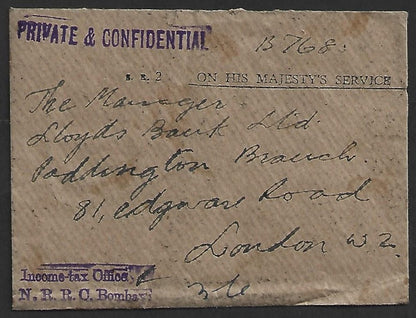 PRIVATE & CONFIDENTIAL
B 768.
S. E. 2 ON HIS MAJESTY'S SERVICE
The Manager
Lloyds Bank Ltd.
Paddington Branch
81, edgware Road
London W2
Income-tax Office
N. R. R. C. Bombay